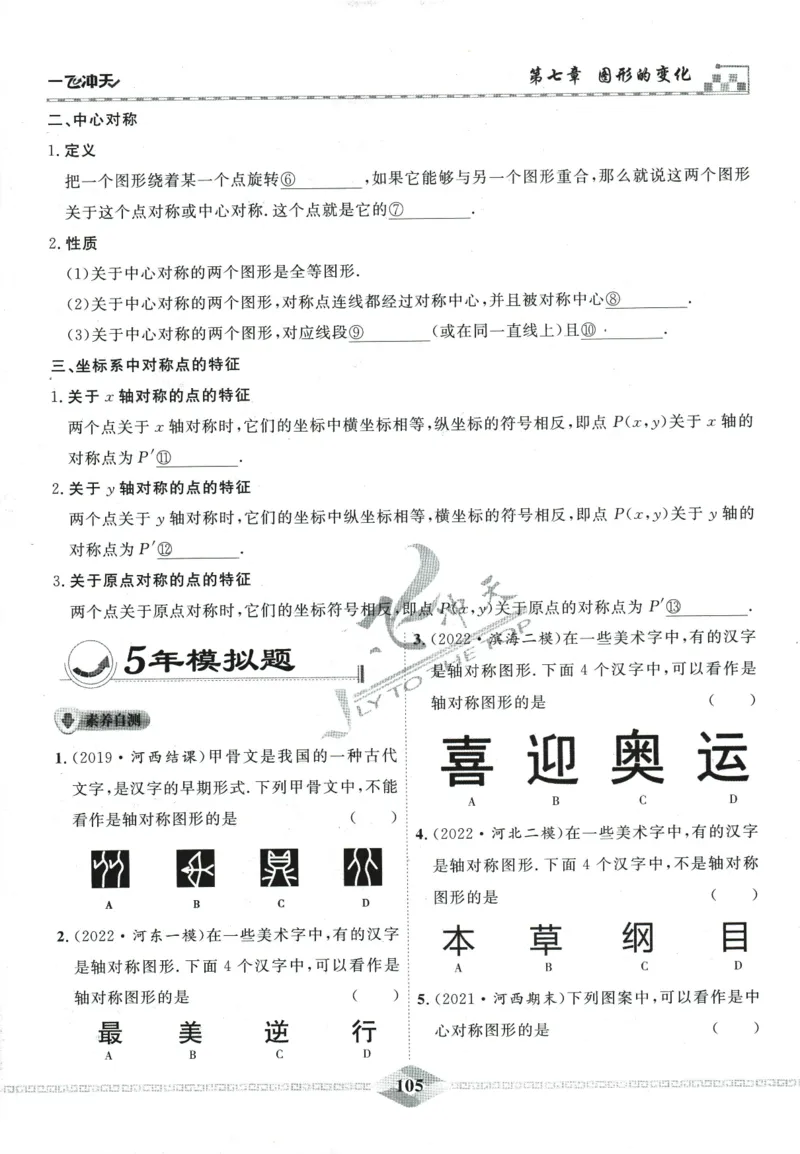 一飞冲天
第七章 图形的变化
二、中心对称
1. 定义
把一个图形绕着某一个点旋转⑥________,如果它能够与另一个图形重合,那么就说这两个图形
关于这个点对称或中心对称. 这个点就是它的⑦________.
2. 性质
(1)关于中心对称的两个图形是全等图形.
(2)关于中心对称的两个图形,对称点连线都经过对称中心,并且被对称中心⑧________.
(3)关于中心对称的两个图形,对应线段⑨________(或在同一直线上)且⑩________.
三、坐标系中对称点的特征
1. 关于 x 轴对称的点的特征
两个点关于 x 轴对称时,它们的坐标中横坐标相等,纵坐标的符号相反,即点 P(x,y)关于 x 轴的
对称点为 P′⑪________.
2. 关于 y 轴对称的点的特征
两个点关于 y 轴对称时,它们的坐标中纵坐标相等,横坐标的符号相反,即点 P(x,y)关于 y 轴的
对称点为 P′⑫________.
3. 关于原点对称的点的特征
两个点关于原点对称时,它们的坐标符号相反,即点 P(x,y)关于原点的对称点为 P′⑬________.
飞冲天
FLY TO THE TOP
5年模拟题
素养自测
1. (2019·河西结课)甲骨文是我国的一种古代
文字,是汉字的早期形式. 下列甲骨文中,不能
看作是轴对称图形的是 ( )
A B C D
2. (2022·河东一模)在一些美术字中,有的汉字
是轴对称图形. 下面 4 个汉字中,可以看作是
轴对称图形的是 ( )
最 美 逆 行
A B C D
3. (2022·滨海二模)在一些美术字中,有的汉字
是轴对称图形. 下面 4 个汉字中,可以看作是
轴对称图形的是 ( )
喜 迎 奥 运
A B C D
4. (2022·河北二模)在一些美术字中,有的汉字
是轴对称图形. 下面 4 个汉字中,不是轴对称
图形的是 ( )
本 草 纲 目
A B C D
5. (2021·河西期末)下列图案中,可以看作是中
心对称图形的是 ( )
105